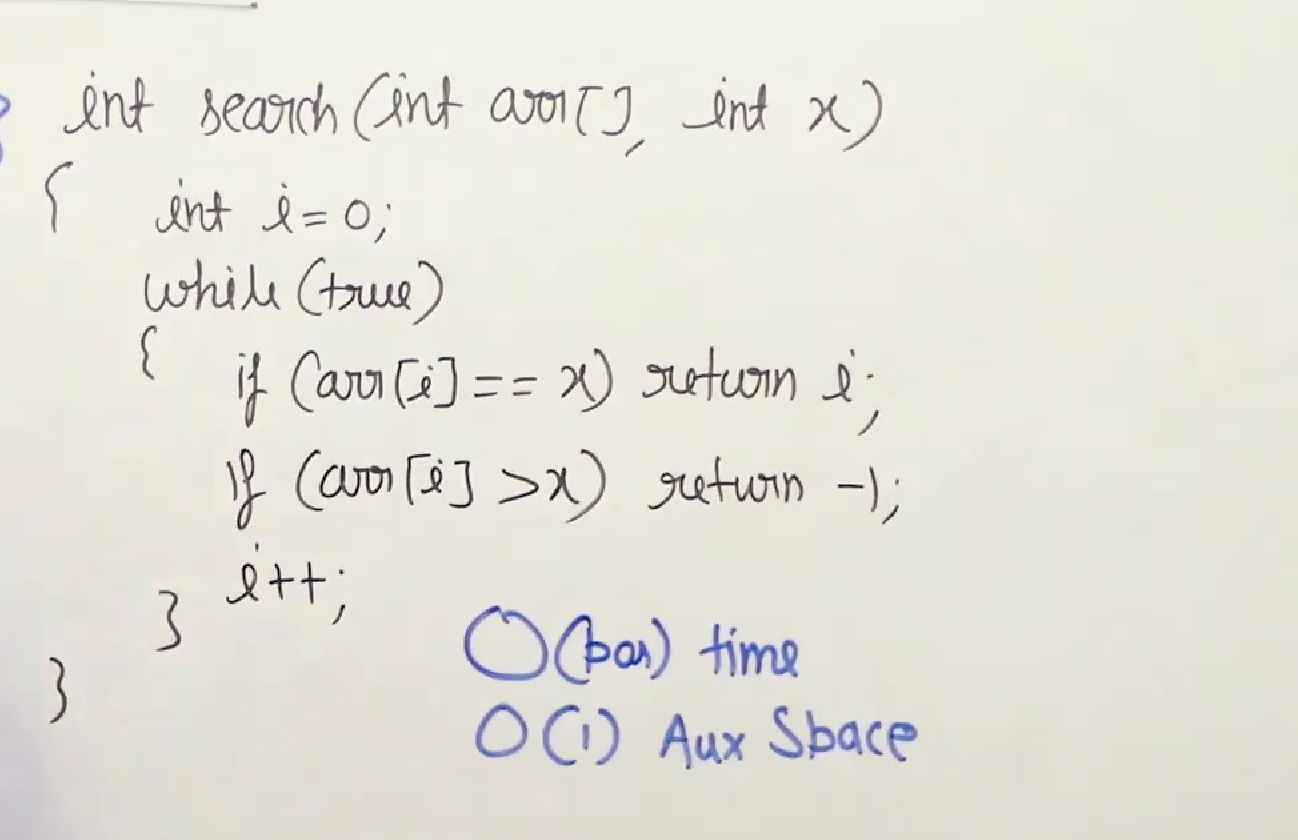 int search(int arr[], int x)
{ int i=0;
while(true)
{ if (arr[i]== x) return i;
if (arr[i] >x) return -1;
i++;
}
}
O(pos) time
O(1) Aux Space